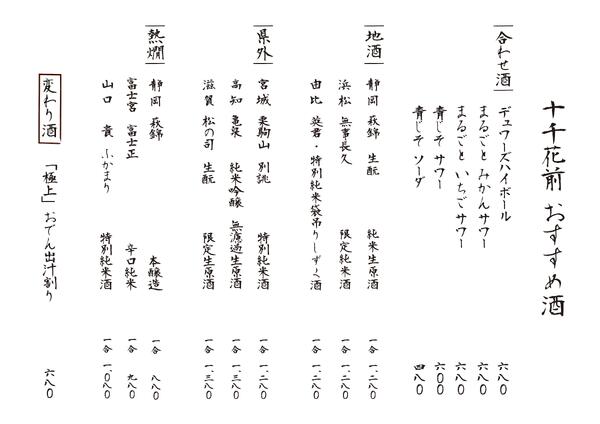 十千花前 おすすめ酒
合わせ酒
デュワーズハイボール 六八〇
まるごと みかんサワー 六八〇
まるごと いちごサワー 六八〇
青じそ サワー 六〇〇
青じそ ソーダ 四八〇
地酒
静岡 萩錦 生酛 純米生原酒 一合 一、二八〇
浜松 無事長久 限定純米酒 一合 一、二八〇
由比 英君・特別純米袋吊りしずく酒 一合 一、二八〇
県外
宮城 栗駒山 別誂 特別純米酒 一合 一、二八〇
高知 亀泉 純米吟醸 無濾過生原酒 一合 一、三八〇
滋賀 松の司 生酛 限定生原酒 一合 一、三八〇
熱燗
静岡 萩錦 本醸造 一合 八八〇
富士宮 富士正 辛口純米 一合 九八〇
山口 貴 ふかまり 特別純米酒 一合 一、〇八〇
変わり酒
「極上」おでん出汁割り 六八〇